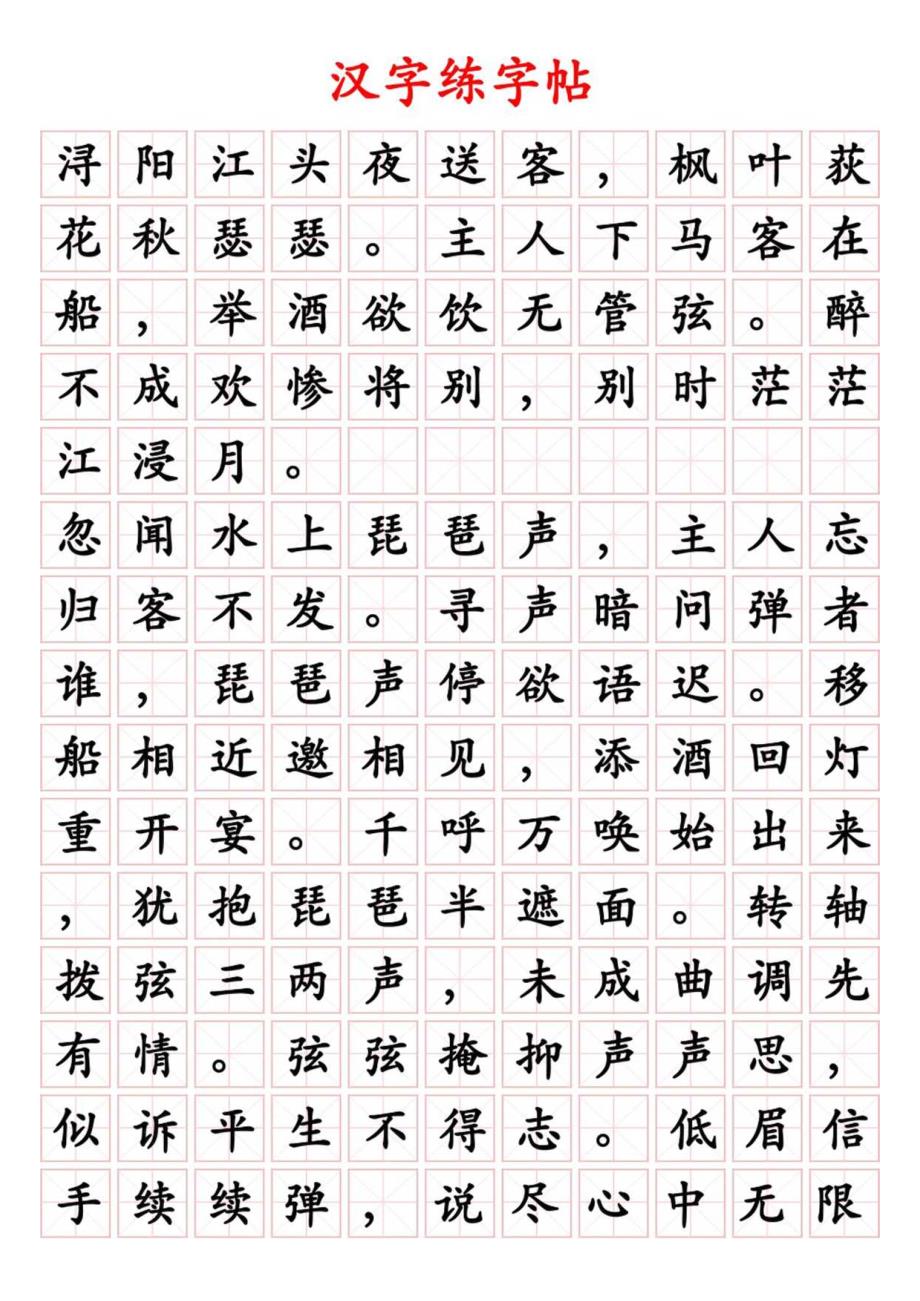 汉字练字帖
浔阳江头夜送客，枫叶荻
花秋瑟瑟。主人下马客在
船，举酒欲饮无管弦。醉
不成欢惨将别，别时茫茫
江浸月。
忽闻水上琵琶声，主人忘
归客不发。寻声暗问弹者
谁，琵琶声停欲语迟。移
船相近邀相见，添酒回灯
重开宴。千呼万唤始出来
，犹抱琵琶半遮面。转轴
拨弦三两声，未成曲调先
有情。弦弦掩抑声声思，
似诉平生不得志。低眉信
手续续弹，说尽心中无限